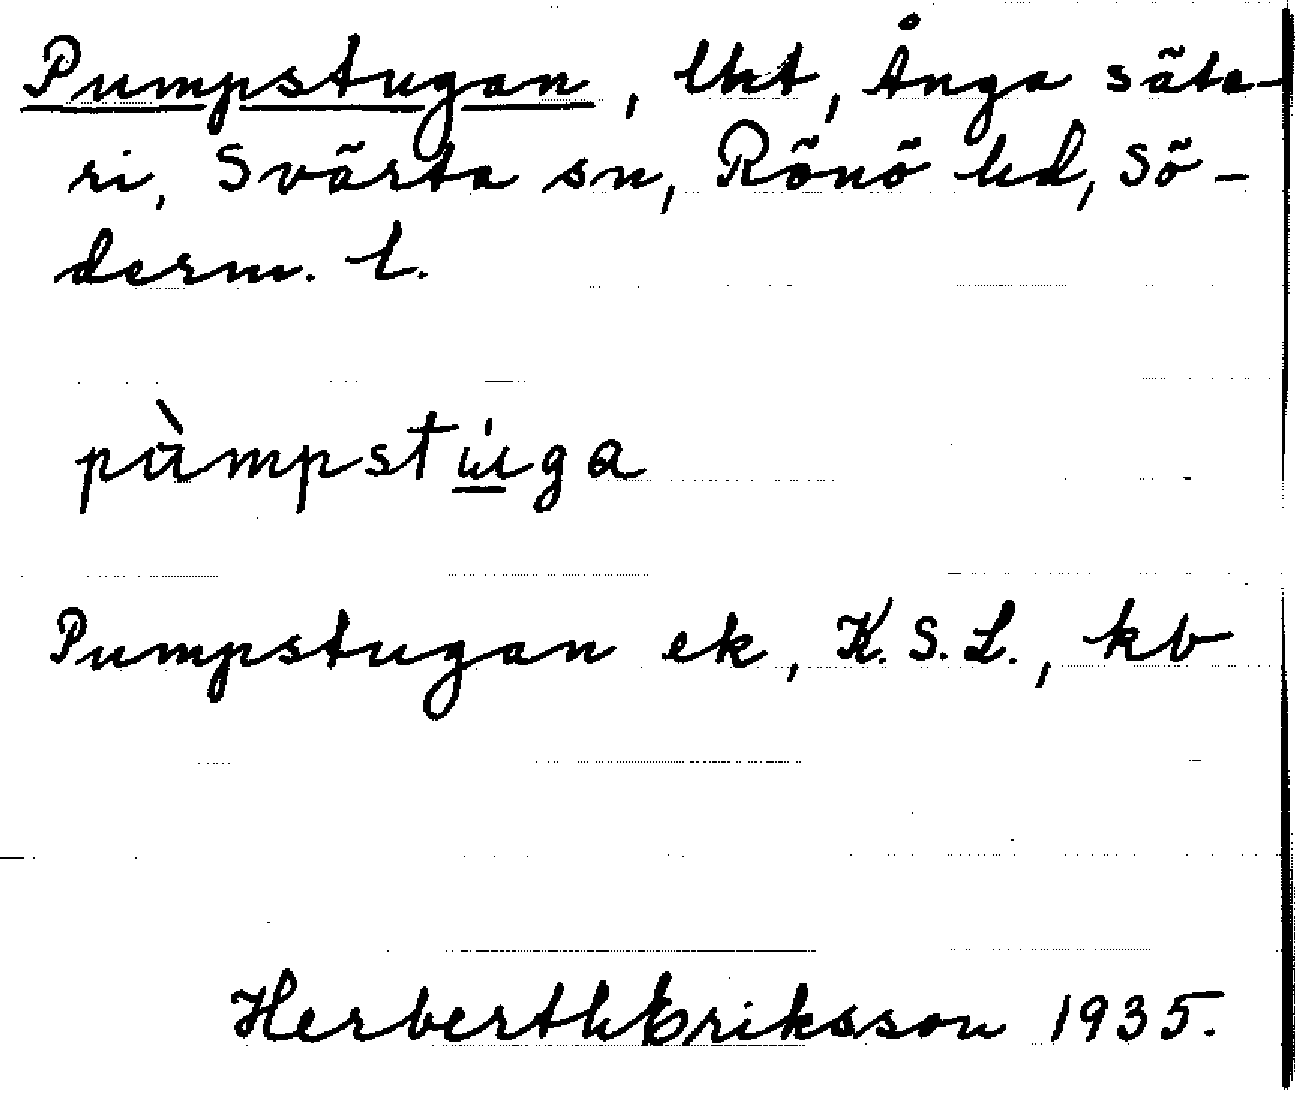 Pumpstugan, lht, Ånga säte-
ri, Svärta sn, Rönö hd, Sö-
derm. l.
pùmpstu̲̍ga
Pumpstugan ek, K.S.L., kb
Herberth Eriksson 1935.